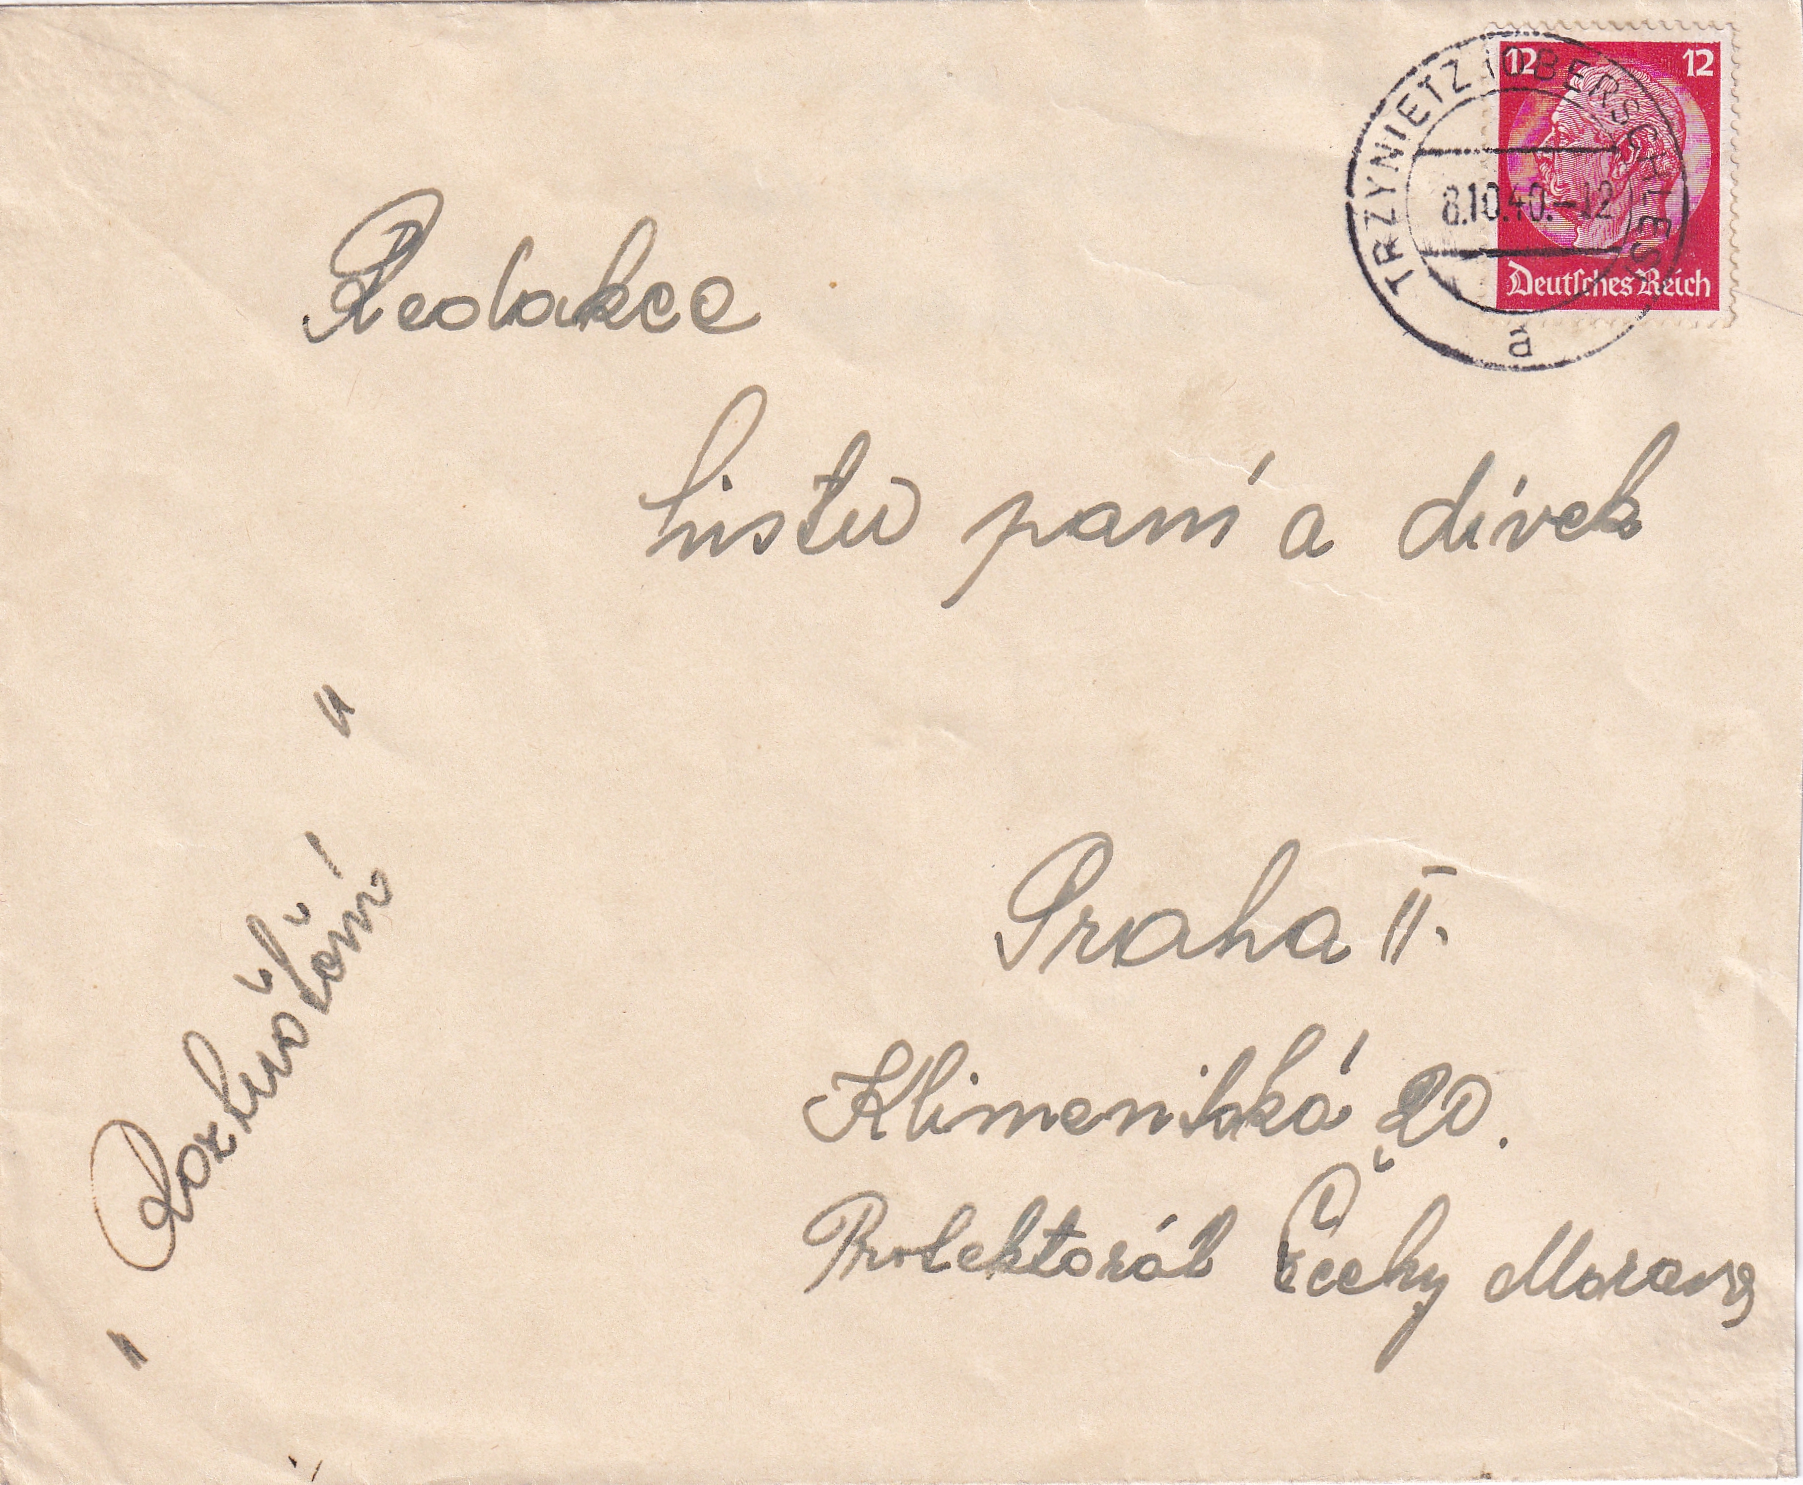 12 12
TRZYNIETZ (OBERSCHLES)
8.10.40.-12
a
Deutsches Reich
Redakce
listu paní a dívek
Praha II.
Klimentská 20.
Protektorát Čechy Morava
"Rozluštění"